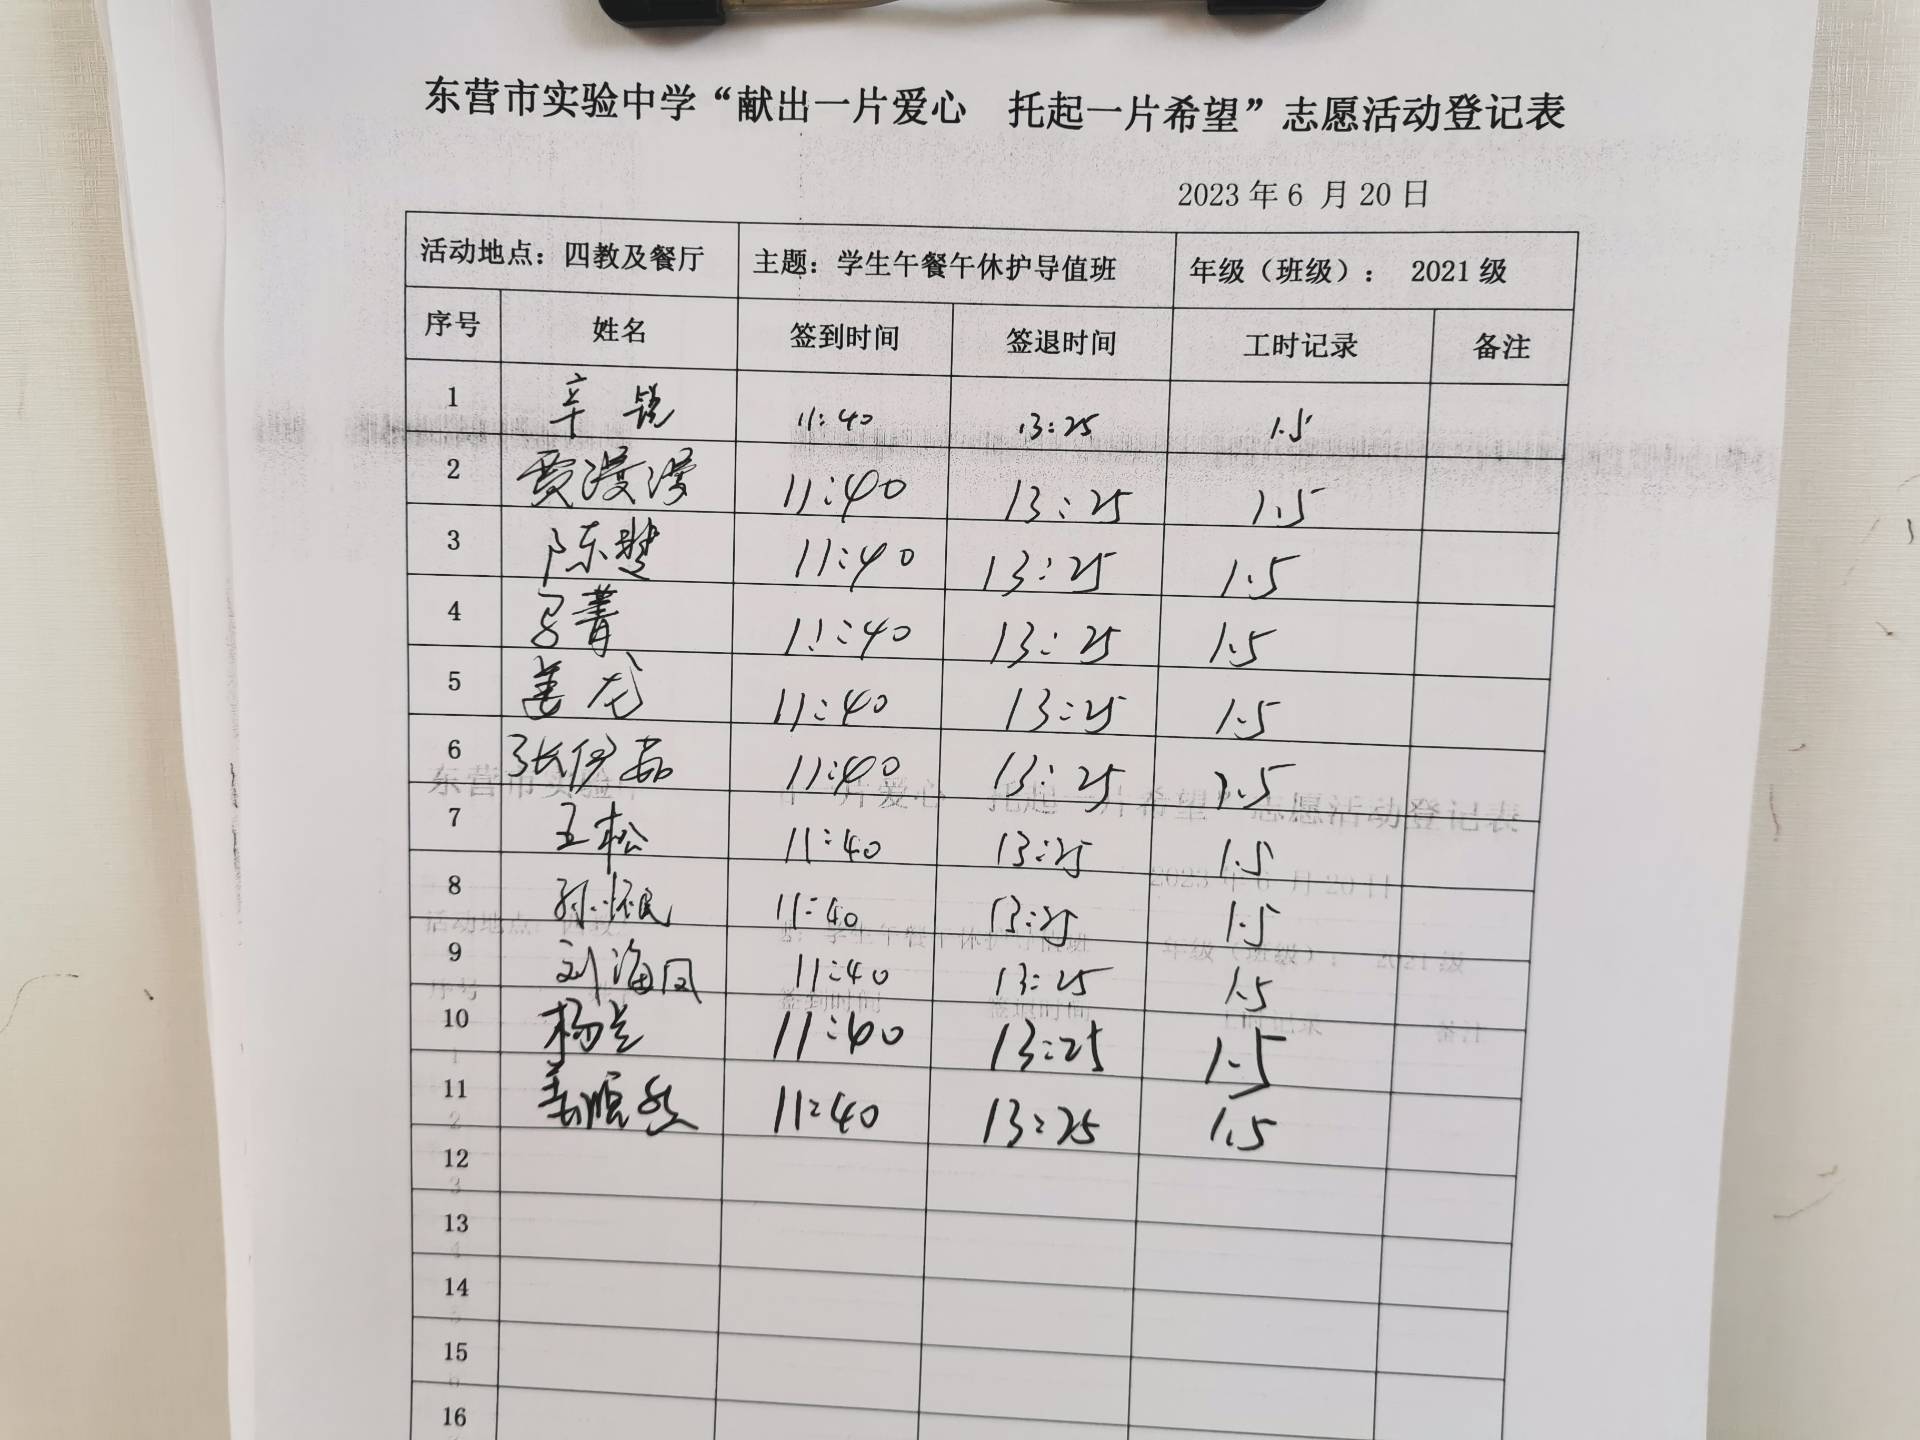 东营市实验中学“献出一片爱心 托起一片希望”志愿活动登记表
2023 年 6 月 20 日
活动地点：四教及餐厅 主题：学生午餐午休护导值班 年级（班级）： 2021 级
序号 姓名 签到时间 签退时间 工时记录 备注
1 辛锐 11:40 13:25 1.5
2 贾漫漫 11:40 13:25 1.5
3 陈楚 11:40 13:25 1.5
4 吕菁 11:40 13:25 1.5
5 姜龙 11:40 13:25 1.5
6 张伊茹 11:40 13:25 1.5
7 王松 11:40 13:25 1.5
8 孙怀民 11:40 13:25 1.5
9 刘海凤 11:40 13:25 1.5
10 杨兰 11:40 13:25 1.5
11 11:40 13:25 1.5
12
13
14
15
16